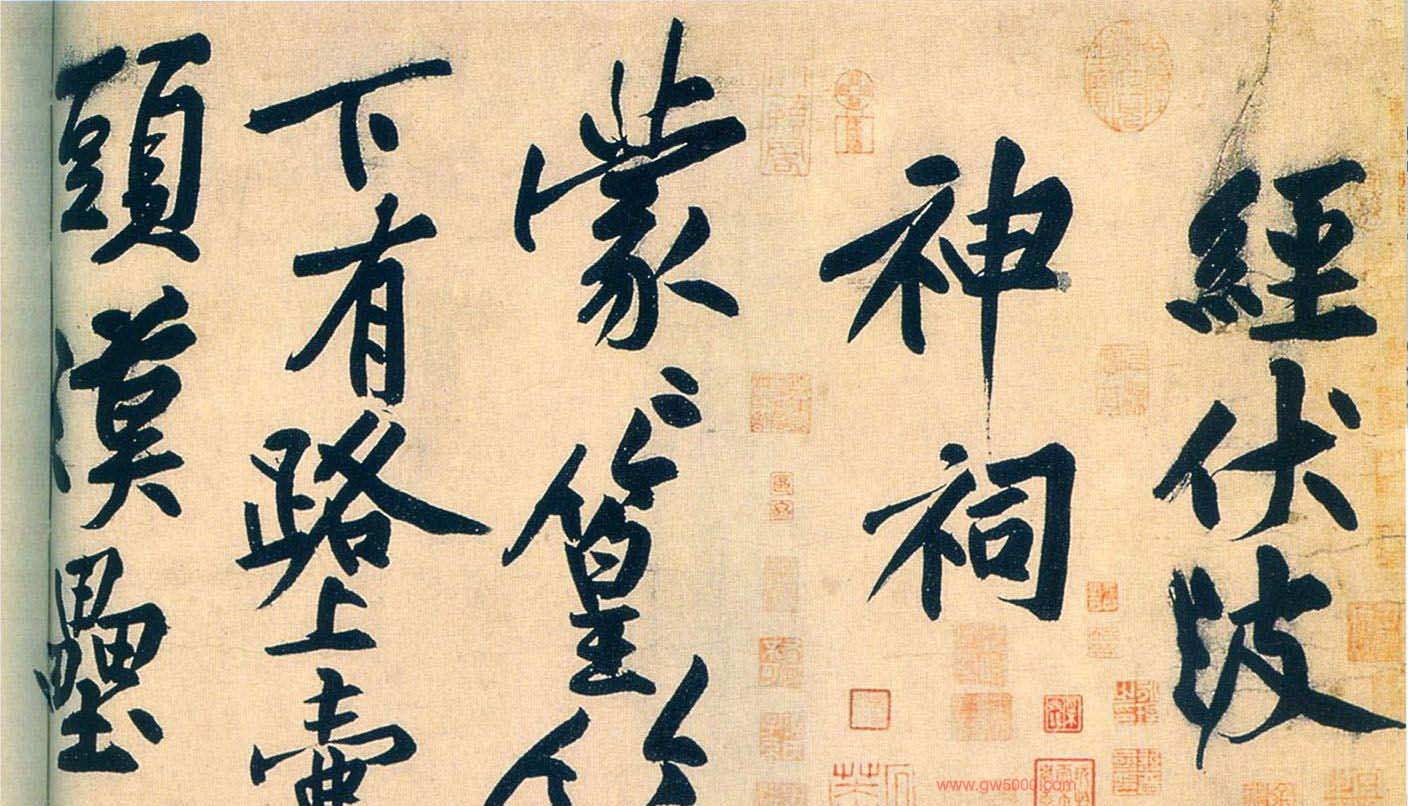 經伏波
神祠
蒙〻篁竹
下有路上壺
頭漢壘
www.gw5000.com